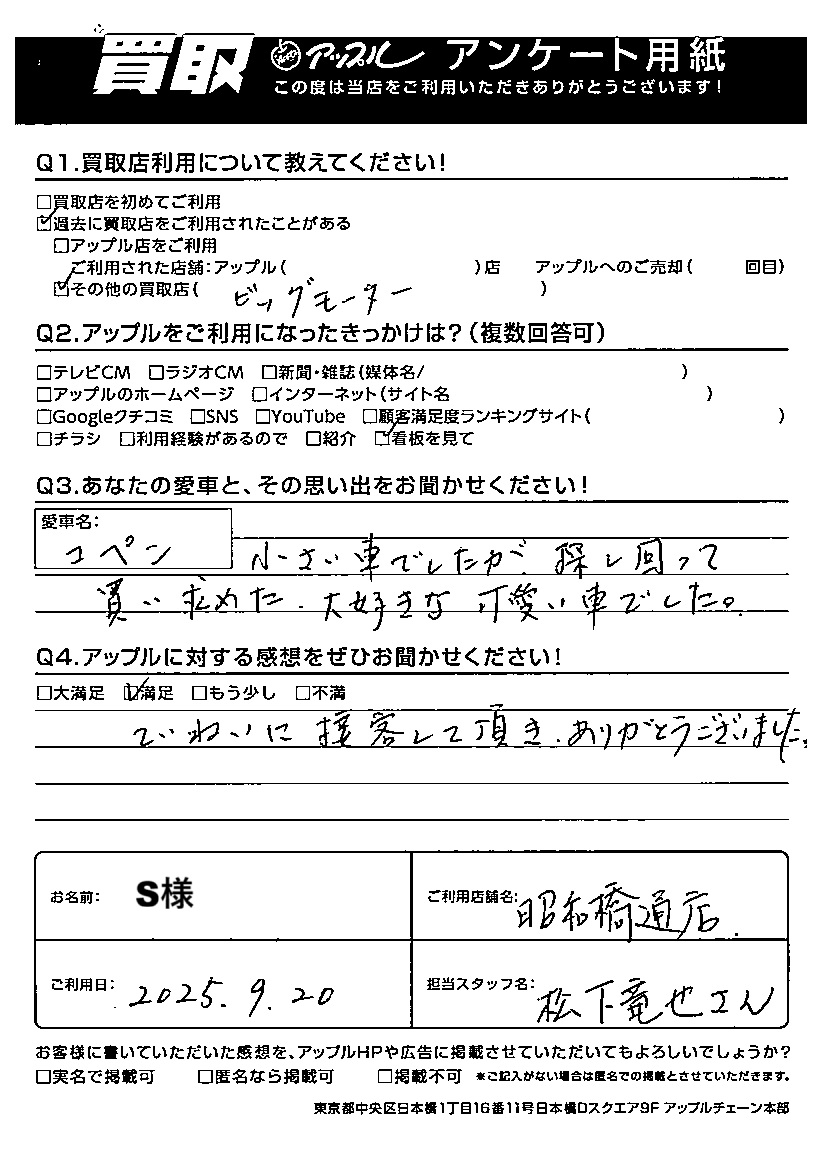 買取 アップル アンケート用紙
この度は当店をご利用いただきありがとうございます!
Q1.買取店利用について教えてください!
□買取店を初めてご利用
☑過去に買取店をご利用されたことがある
□アップル店をご利用
ご利用された店舗:アップル( )店 アップルへのご売却( 回目)
☑その他の買取店( ビッグモーター )
Q2.アップルをご利用になったきっかけは?(複数回答可)
□テレビCM □ラジオCM □新聞・雑誌(媒体名/ )
□アップルのホームページ □インターネット(サイト名 )
□Googleクチコミ □SNS □YouTube □顧客満足度ランキングサイト( )
□チラシ □利用経験があるので □紹介 ☑看板を見て
Q3.あなたの愛車と、その思い出をお聞かせください!
愛車名:
コペン 小さい車でしたが、探し回って
買い求めた、大好きな可愛い車でした。
Q4.アップルに対する感想をぜひお聞かせください!
□大満足 ☑満足 □もう少し □不満
ていねいに接客して頂き、ありがとうございました。
お名前: S様 ご利用店舗名: 昭和橋通店.
ご利用日: 2025.9.20 担当スタッフ名: 松下竜也さん
お客様に書いていただいた感想を、アップルHPや広告に掲載させていただいてもよろしいでしょうか?
□実名で掲載可 □匿名なら掲載可 □掲載不可 *ご記入がない場合は匿名での掲載とさせていただきます。
東京都中央区日本橋1丁目16番11号日本橋Dスクエア9F アップルチェーン本部